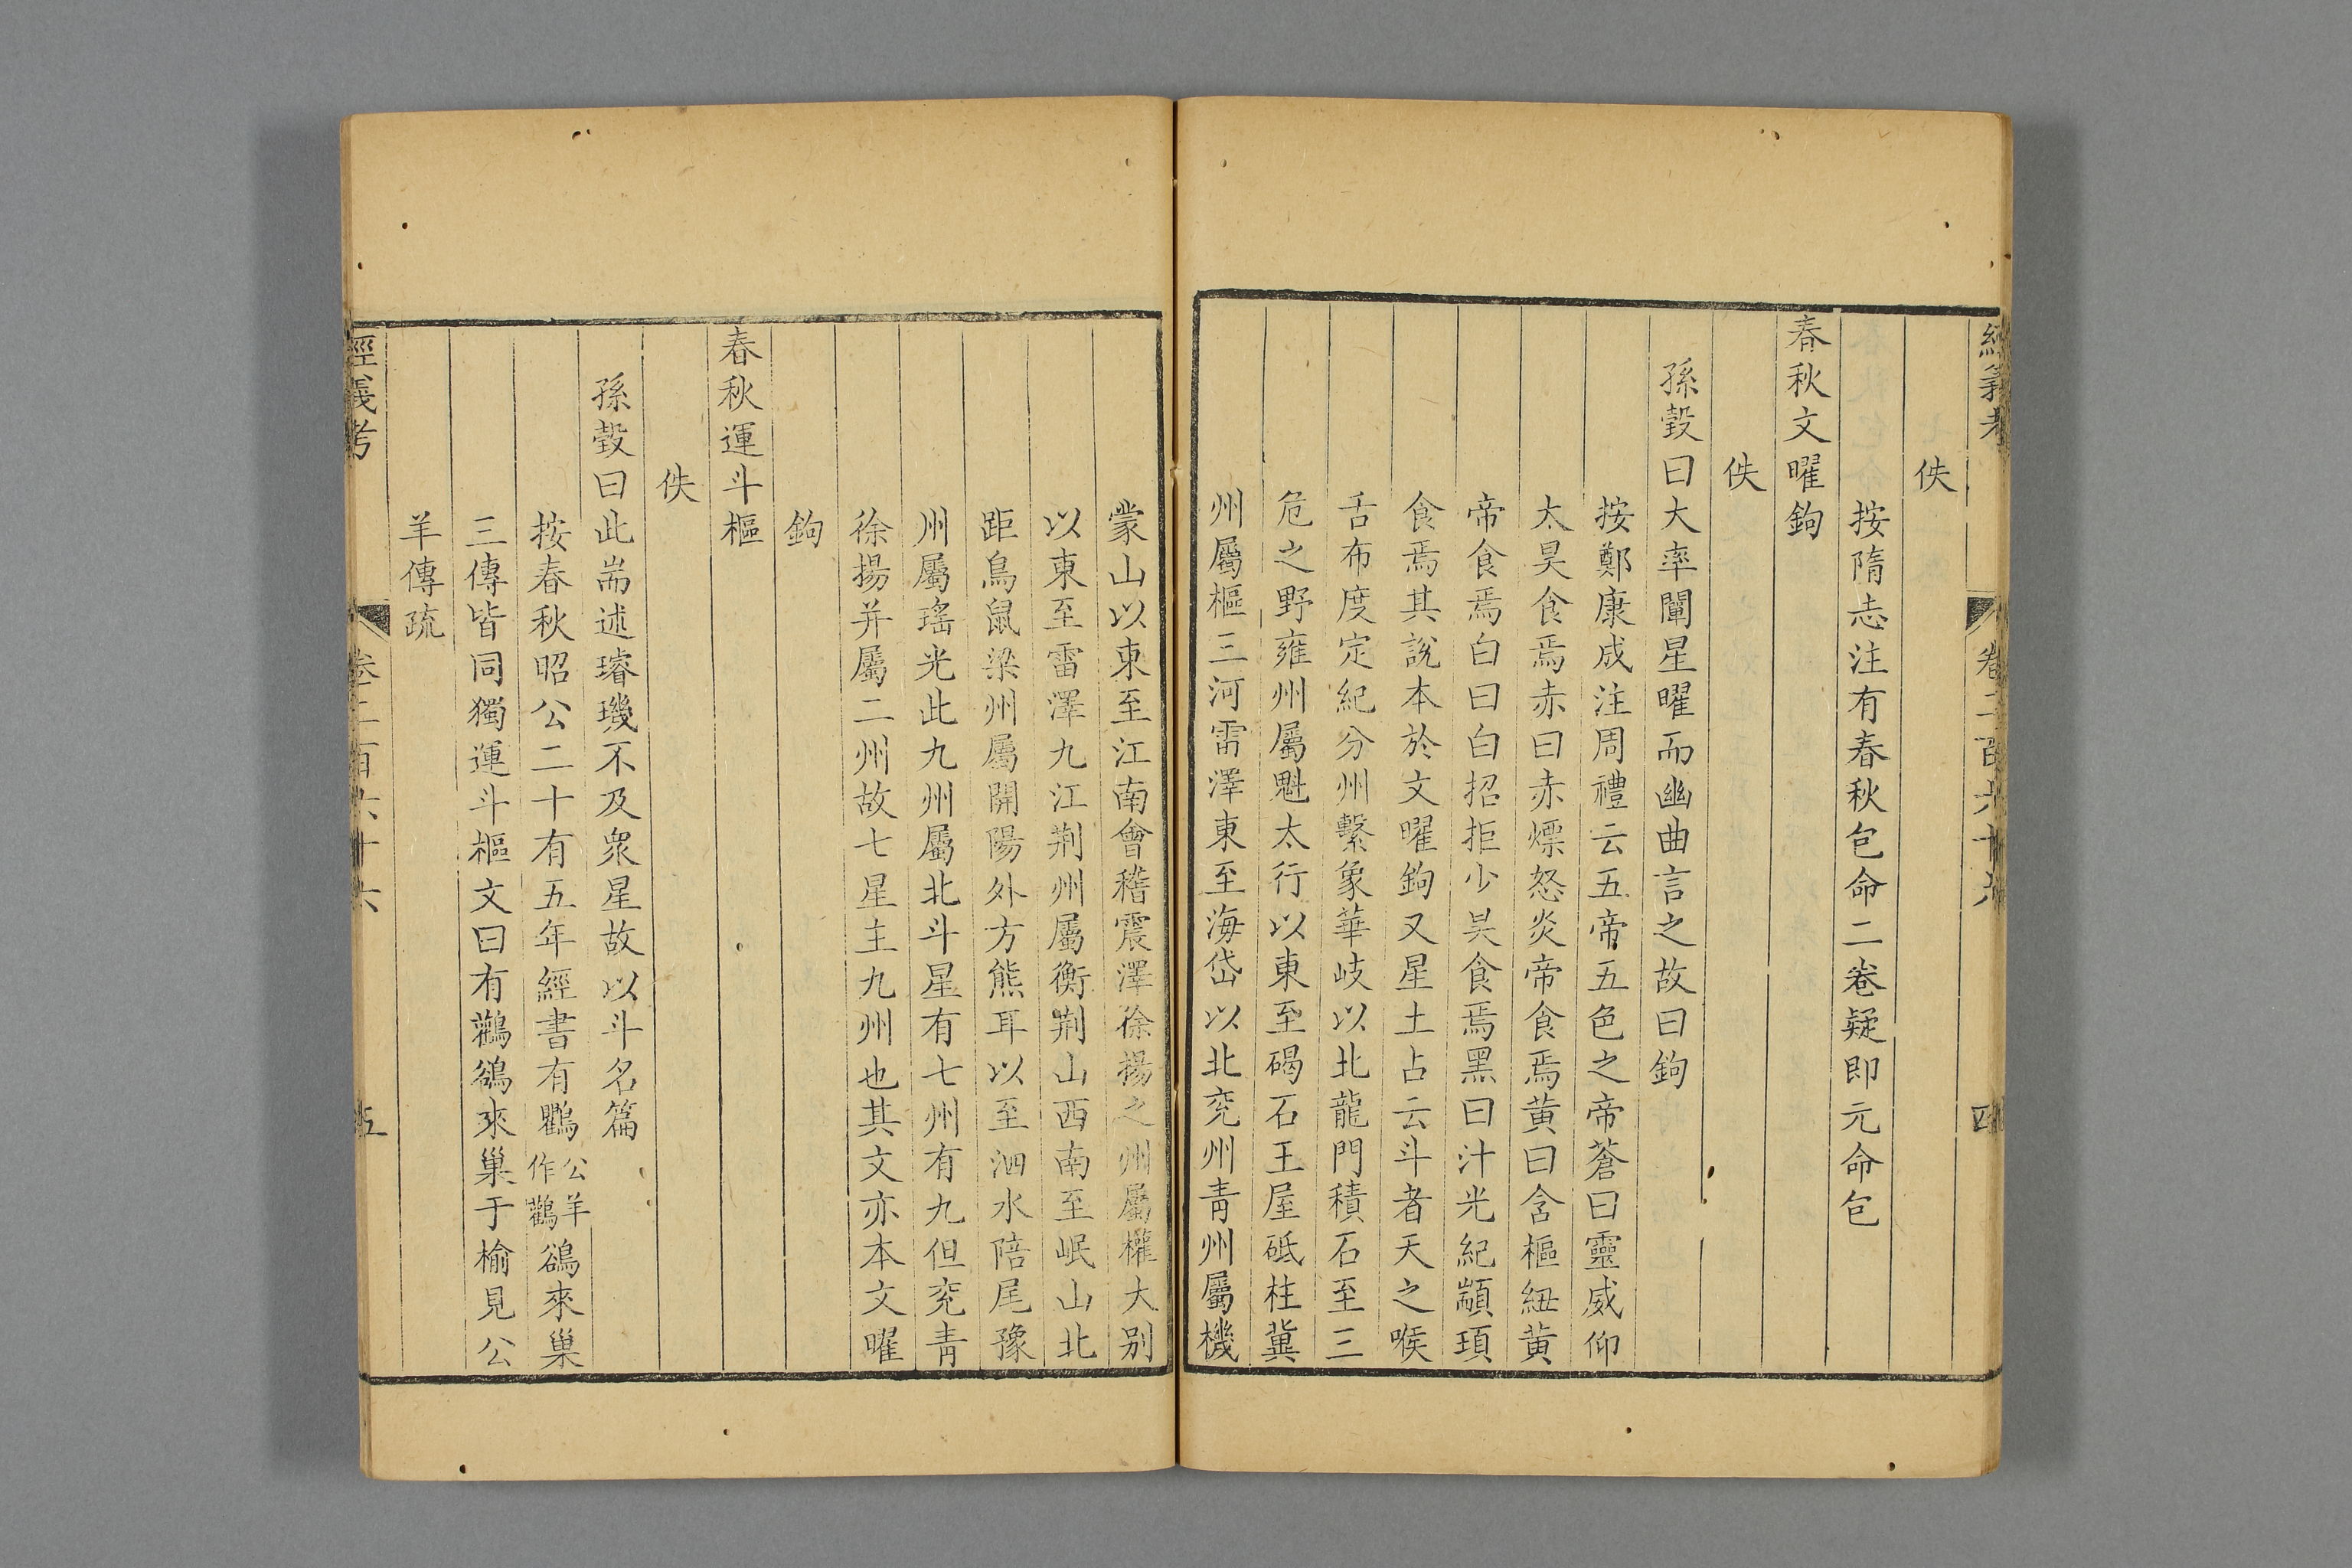 經義考 卷二百六十六 四
佚
按隋志注有春秋包命二卷疑即元命包
春秋文曜鉤
佚
孫瑴曰大率闡星曜而幽曲言之故曰鉤
按鄭康成注周禮云五帝五色之帝蒼曰靈威仰
太昊食焉赤曰赤熛怒炎帝食焉黃曰含樞紐黃
帝食焉白曰白招拒少昊食焉黑曰汁光紀顓頊
食焉其說本於文曜鉤又星土占云斗者天之喉
舌布度定紀分州繫象華岐以北龍門積石至三
危之野雍州屬魁太行以東至碣石王屋砥柱冀
州屬樞三河雷澤東至海岱以北兗州青州屬機
蒙山以東至江南會稽震澤徐揚之州屬權大別
以東至雷澤九江荆州屬衡荆山西南至岷山北
距鳥鼠梁州屬開陽外方熊耳以至泗水陪尾豫
州屬瑤光此九州屬北斗星有七州有九但兗青
徐揚并屬二州故七星主九州也其文亦本文曜
鉤
春秋運斗樞
佚
孫瑴曰此耑述璿璣不及眾星故以斗名篇
按春秋昭公二十有五年經書有鸜公羊作鸛鵒來巢
三傳皆同獨運斗樞文曰有鸛鵒來巢于榆見公
羊傳疏
經義考 卷二百六十六 五